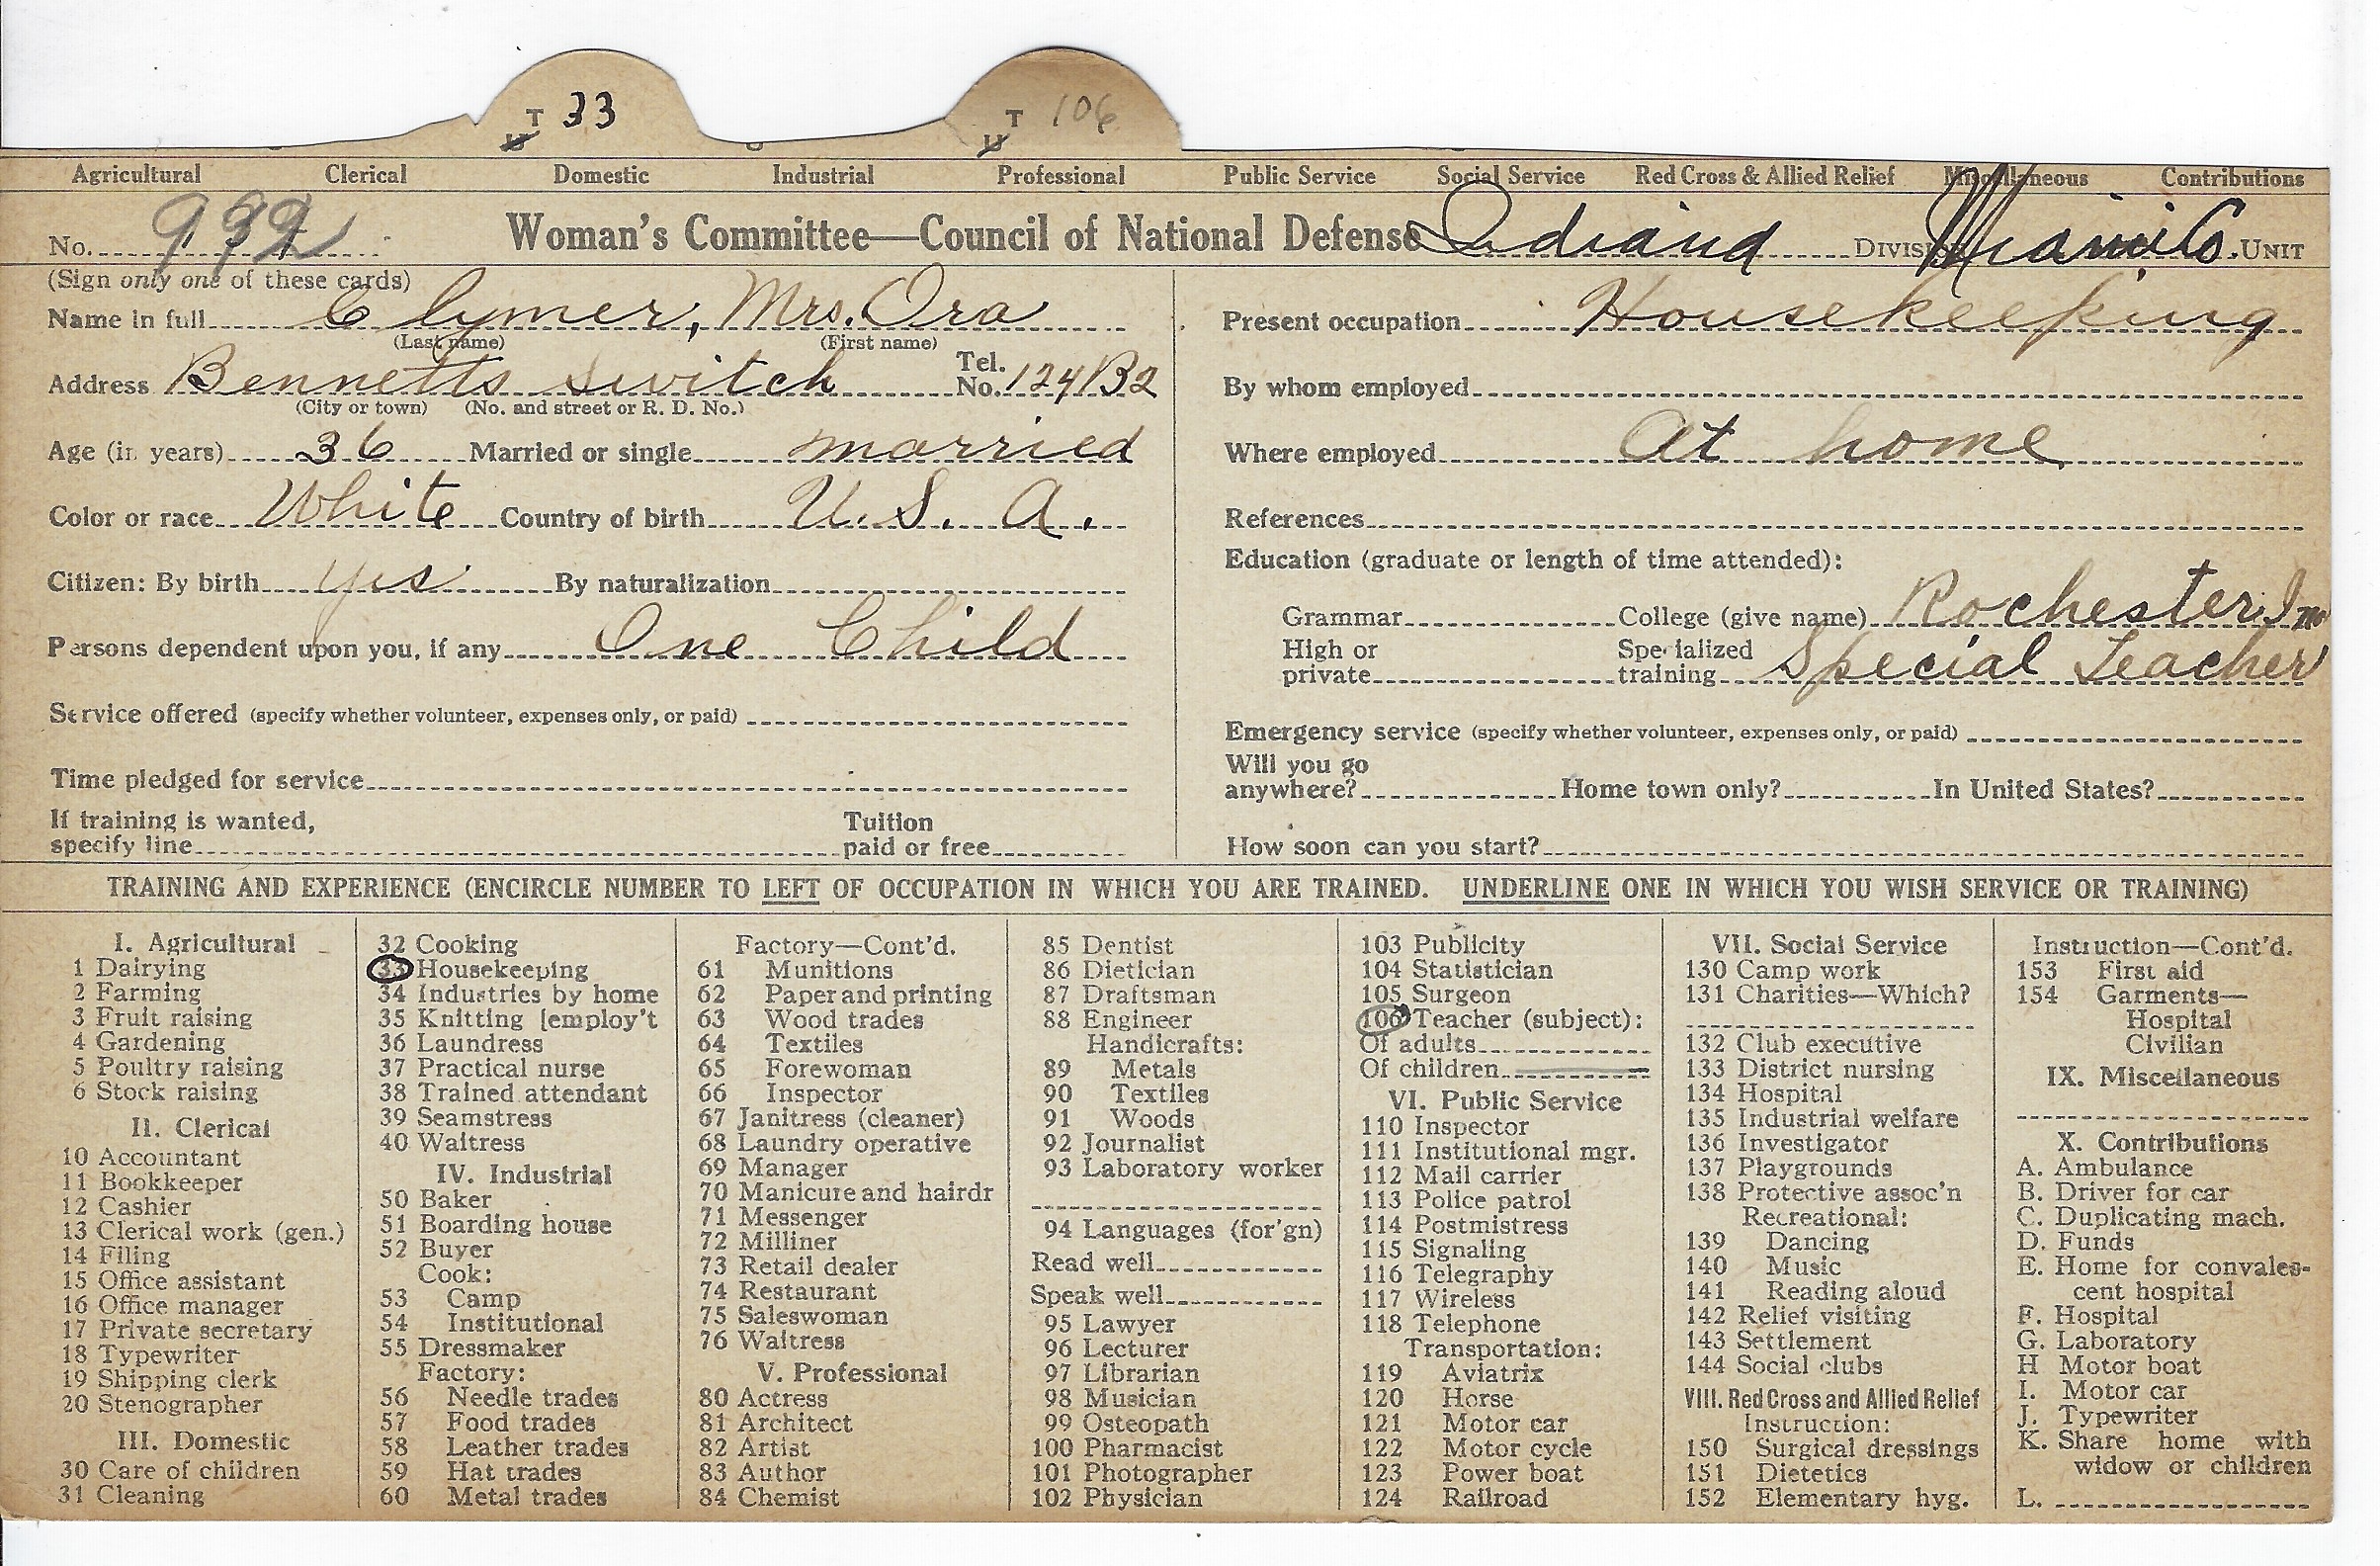 T 33 T 106
U U
Agricultural Clerical Domestic Industrial Professional Public Service Social Service Red Cross & Allied Relief Miscellaneous Contributions
No. 992 Woman's Committee—Council of National Defense Indiana Division Miami Co. Unit
(Sign only one of these cards)
Name in full Clymer, Mrs. Ora
(Last name) (First name)
Address Bennetts Switch Tel. No. 124/B2
(City or town) (No. and street or R. D. No.)
Age (in years) 36 Married or single married
Color or race White Country of birth U. S. A.
Citizen: By birth yes By naturalization
Persons dependent upon you, if any One Child
Service offered (specify whether volunteer, expenses only, or paid)
Time pledged for service
If training is wanted, Tuition
specify line paid or free
Present occupation Housekeeping
By whom employed
Where employed At home
References
Education (graduate or length of time attended):
Grammar College (give name) Rochester
High or Specialized
private training Special Teacher
Emergency service (specify whether volunteer, expenses only, or paid)
Will you go
anywhere? Home town only? In United States?
How soon can you start?
TRAINING AND EXPERIENCE (ENCIRCLE NUMBER TO LEFT OF OCCUPATION IN WHICH YOU ARE TRAINED. UNDERLINE ONE IN WHICH YOU WISH SERVICE OR TRAINING)
I. Agricultural
1 Dairying
2 Farming
3 Fruit raising
4 Gardening
5 Poultry raising
6 Stock raising
II. Clerical
10 Accountant
11 Bookkeeper
12 Cashier
13 Clerical work (gen.)
14 Filing
15 Office assistant
16 Office manager
17 Private secretary
18 Typewriter
19 Shipping clerk
20 Stenographer
III. Domestic
30 Care of children
31 Cleaning
32 Cooking
33 Housekeeping
34 Industries by home
35 Knitting [employ't
36 Laundress
37 Practical nurse
38 Trained attendant
39 Seamstress
40 Waitress
IV. Industrial
50 Baker
51 Boarding house
52 Buyer
Cook:
53 Camp
54 Institutional
55 Dressmaker
Factory:
56 Needle trades
57 Food trades
58 Leather trades
59 Hat trades
60 Metal trades
Factory—Cont'd.
61 Munitions
62 Paper and printing
63 Wood trades
64 Textiles
65 Forewoman
66 Inspector
67 Janitress (cleaner)
68 Laundry operative
69 Manager
70 Manicure and hairdr
71 Messenger
72 Milliner
73 Retail dealer
74 Restaurant
75 Saleswoman
76 Waitress
V. Professional
80 Actress
81 Architect
82 Artist
83 Author
84 Chemist
85 Dentist
86 Dietician
87 Draftsman
88 Engineer
Handicrafts:
89 Metals
90 Textiles
91 Woods
92 Journalist
93 Laboratory worker
94 Languages (for'gn)
Read well
Speak well
95 Lawyer
96 Lecturer
97 Librarian
98 Musician
99 Osteopath
100 Pharmacist
101 Photographer
102 Physician
103 Publicity
104 Statistician
105 Surgeon
106 Teacher (subject):
Of adults
Of children
VI. Public Service
110 Inspector
111 Institutional mgr.
112 Mail carrier
113 Police patrol
114 Postmistress
115 Signaling
116 Telegraphy
117 Wireless
118 Telephone
Transportation:
119 Aviatrix
120 Horse
121 Motor car
122 Motor cycle
123 Power boat
124 Railroad
VII. Social Service
130 Camp work
131 Charities—Which?
132 Club executive
133 District nursing
134 Hospital
135 Industrial welfare
136 Investigator
137 Playgrounds
138 Protective assoc'n
Recreational:
139 Dancing
140 Music
141 Reading aloud
142 Relief visiting
143 Settlement
144 Social clubs
VIII. Red Cross and Allied Relief
Instruction:
150 Surgical dressings
151 Dietetics
152 Elementary hyg.
Instruction—Cont'd.
153 First aid
154 Garments—
Hospital
Civilian
IX. Miscellaneous
X. Contributions
A. Ambulance
B. Driver for car
C. Duplicating mach.
D. Funds
E. Home for convales-
cent hospital
F. Hospital
G. Laboratory
H Motor boat
I. Motor car
J. Typewriter
K. Share home with
widow or children
L.